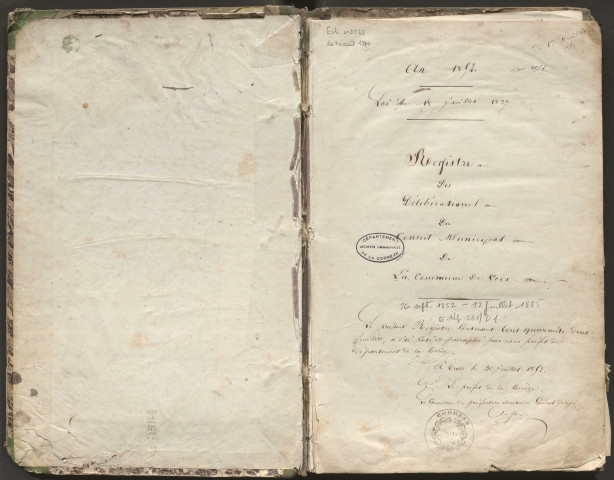 An 1852.
Loi du 18 juillet 1837
Registre
Des
Délibérations
Du
Conseil Municipal
De
La Commune De Voix
DÉPARTEMENT
ARCHIVES COMMUNALES
DE LA CORRÈZE
26 sept. 1852 - 12 juillet 1885
E dép 281/D1
Le présent Registre contenant Cent quarante deux
feuillets, a été coté et paraphé par nous préfet du
Département de la Corrèze,
À Tulle le 30 juillet 1852.
Le préfet de la Corrèze,
Le Conseiller de préfecture Secrétaire Général délégué
CORRÈZE